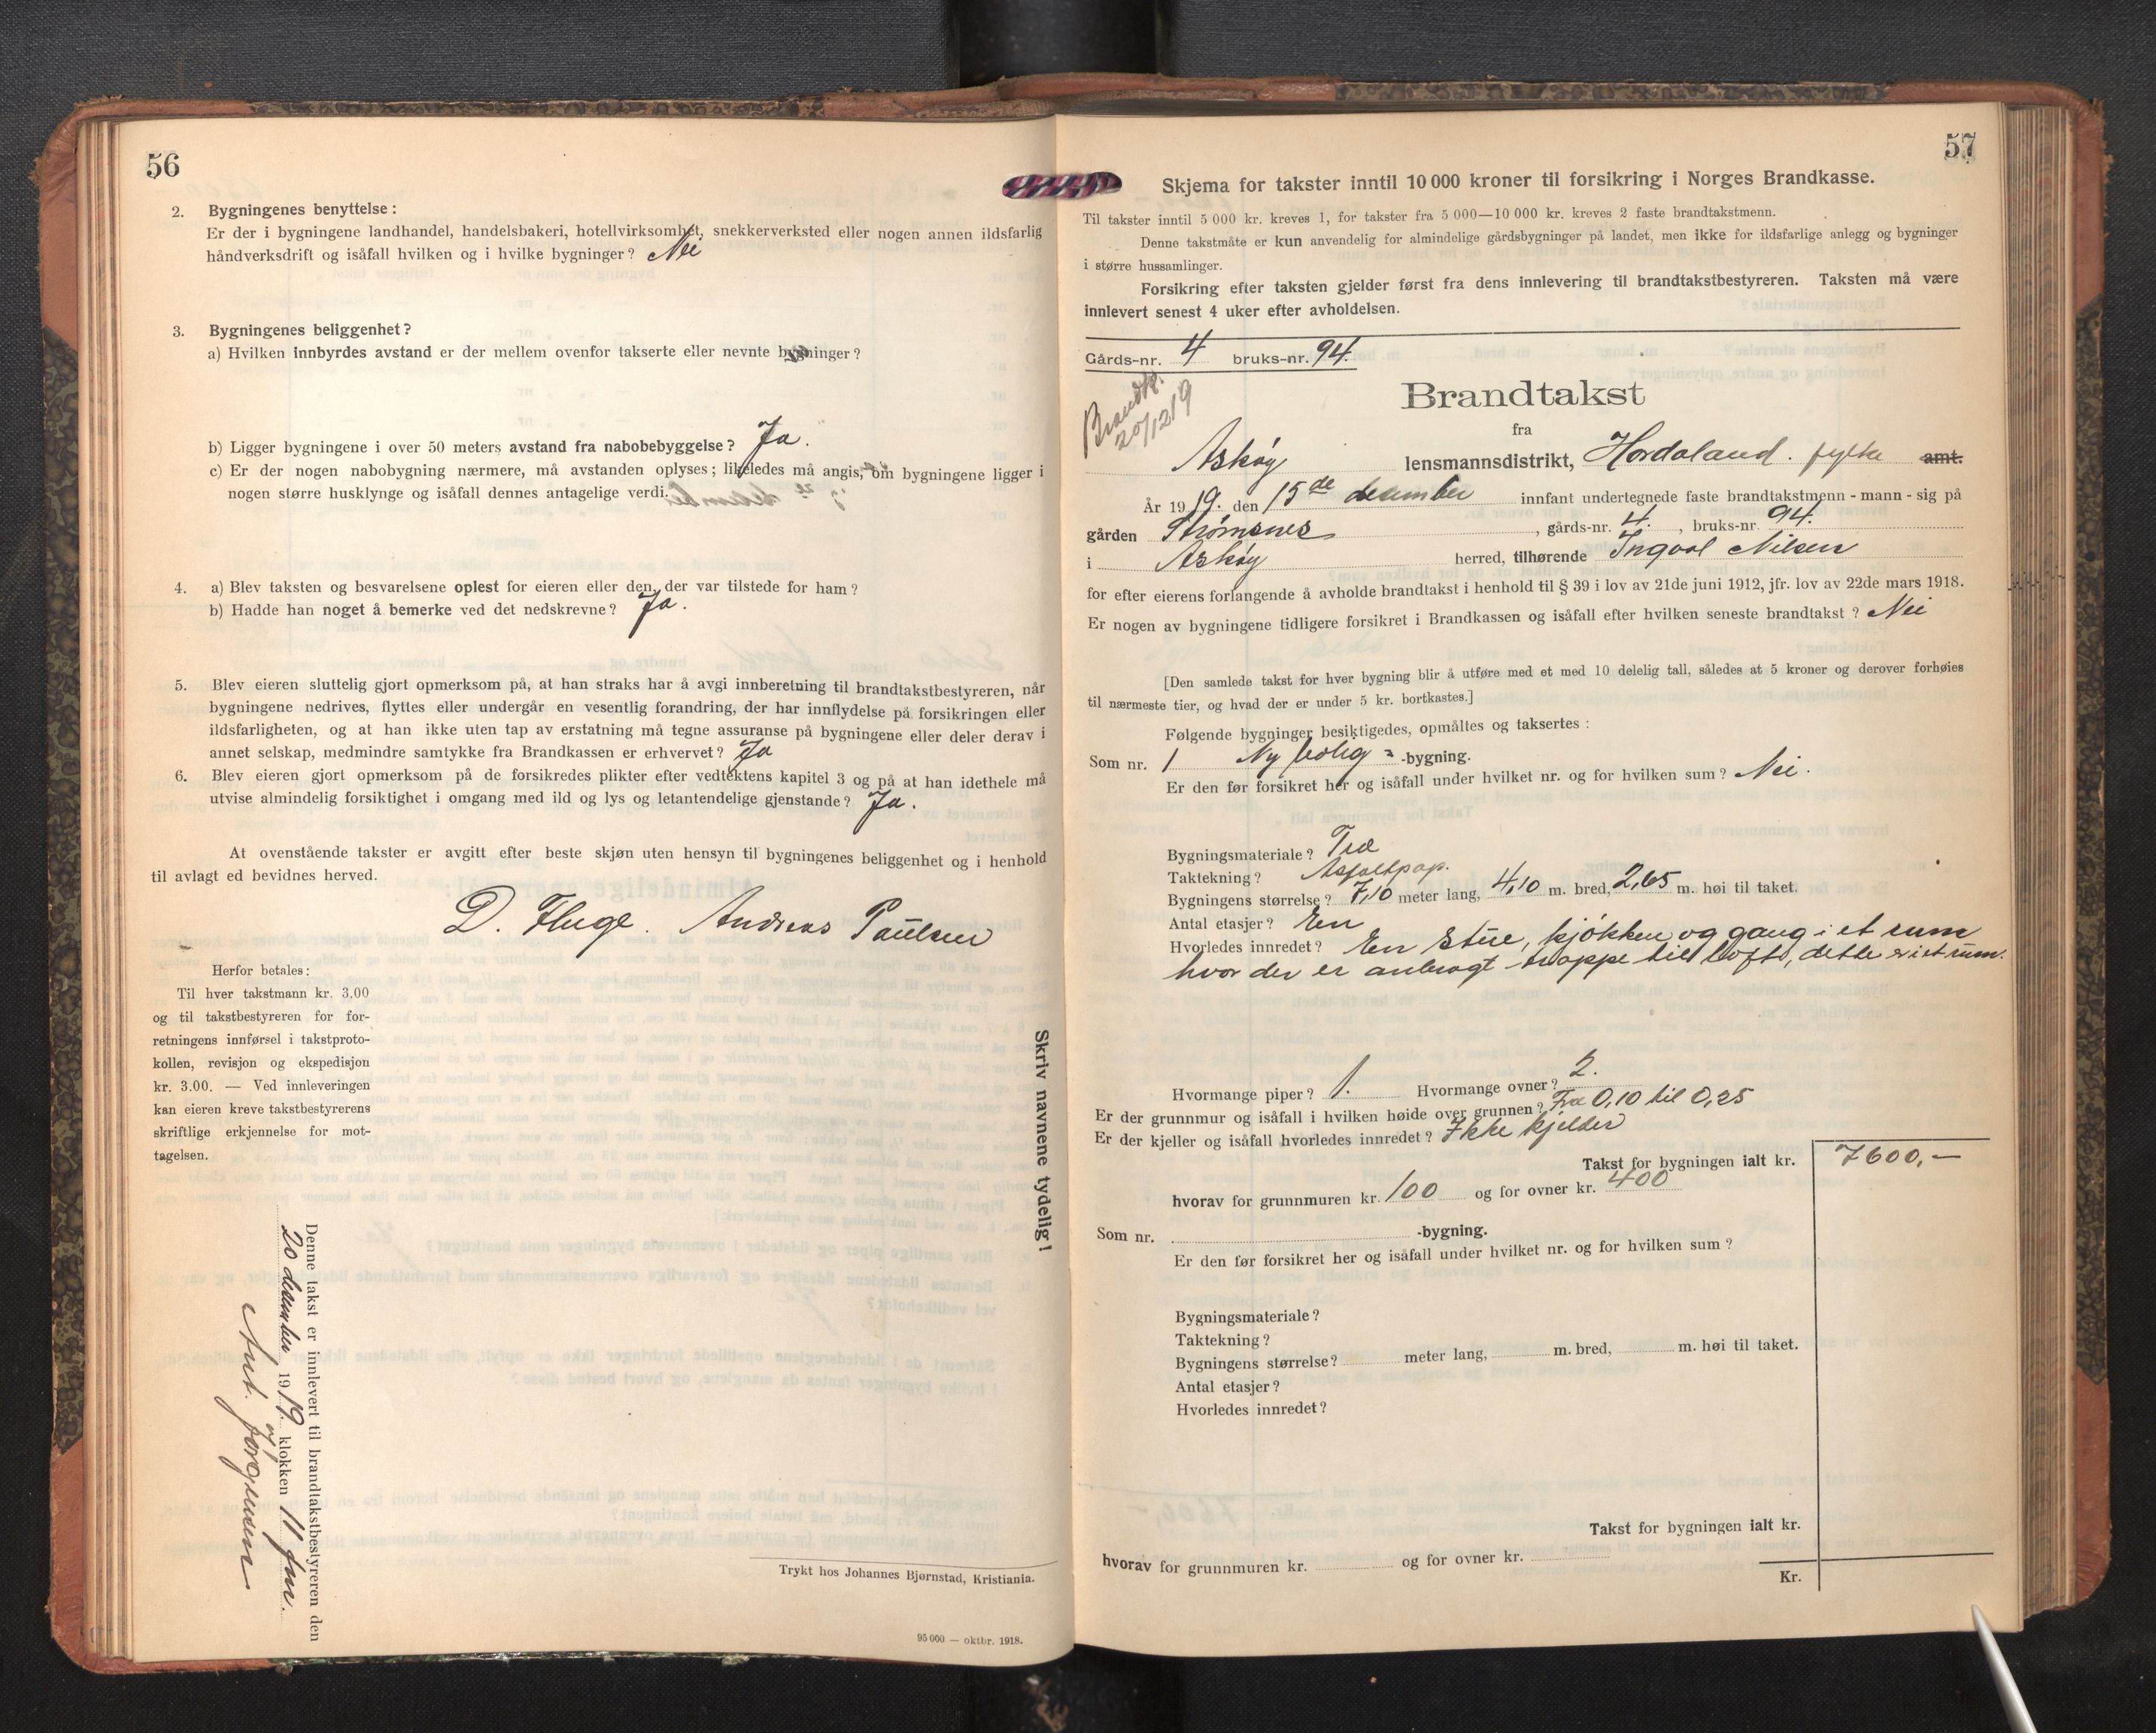 56
2. Bygningenes benyttelse:
Er der i bygningene landhandel, handelsbakeri, hotellvirksomhet, snekkerverksted eller nogen annen ildsfarlig
håndverksdrift og isåfall hvilken og i hvilke bygninger? Nei
3. Bygningenes beliggenhet?
a) Hvilken innbyrdes avstand er der mellem ovenfor takserte eller nevnte bygninger?
b) Ligger bygningene i over 50 meters avstand fra nabobebyggelse? Ja.
c) Er der nogen nabobygning nærmere, må avstanden oplyses; likeledes må angis, om bygningene ligger i
nogen større husklynge og isåfall dennes antagelige verdi.
4. a) Blev taksten og besvarelsene oplest for eieren eller den, der var tilstede for ham?
b) Hadde han noget å bemerke ved det nedskrevne? Ja.
5. Blev eieren sluttelig gjort opmerksom på, at han straks har å avgi innberetning til brandtakstbestyreren, når
bygningene nedrives, flyttes eller undergår en vesentlig forandring, der har innflydelse på forsikringen eller
ildsfarligheten, og at han ikke uten tap av erstatning må tegne assuranse på bygningene eller deler derav i
annet selskap, medmindre samtykke fra Brandkassen er erhvervet? Ja
6. Blev eieren gjort opmerksom på de forsikredes plikter efter vedtektens kapitel 3 og på at han idethele må
utvise almindelig forsiktighet i omgang med ild og lys og letantendelige gjenstande? Ja.
At ovenstående takster er avgitt efter beste skjøn uten hensyn til bygningenes beliggenhet og i henhold
til avlagt ed bevidnes herved.
D. Fluge. Andreas Paulsen
Herfor betales:
Til hver takstmann kr. 3.00
og til takstbestyreren for for-
retningens innførsel i takstproto-
kollen, revisjon og ekspedisjon
kr. 3.00. — Ved innleveringen
kan eieren kreve takstbestyrerens
skriftlige erkjennelse for mot-
tagelsen.
Skriv navnene tydelig!
Denne takst er innlevert til brandtakstbestyreren den
20 december 1919. klokken 11 fm.
Ant. Jørgensen
Trykt hos Johannes Bjørnstad, Kristiania.
95 000 — oktbr. 1918.
57
Skjema for takster inntil 10 000 kroner til forsikring i Norges Brandkasse.
Til takster inntil 5 000 kr. kreves 1, for takster fra 5 000—10 000 kr. kreves 2 faste brandtakstmenn.
Denne takstmåte er kun anvendelig for almindelige gårdsbygninger på landet, men ikke for ildsfarlige anlegg og bygninger
i større hussamlinger.
Forsikring efter taksten gjelder først fra dens innlevering til brandtakstbestyreren. Taksten må være
innlevert senest 4 uker efter avholdelsen.
Gårds-nr. 4 bruks-nr. 94.
Brandtk.
20/12 19
Brandtakst
fra
Askøy lensmannsdistrikt, Hordaland. fylke amt.
År 1919. den 15de december innfant undertegnede faste brandtakstmenn - mann - sig på
gården Strømsnes, gårds-nr. 4., bruks-nr. 94.
i Askøy herred, tilhørende Ingvol Nilsen
for efter eierens forlangende å avholde brandtakst i henhold til § 39 i lov av 21de juni 1912, jfr. lov av 22de mars 1918.
Er nogen av bygningene tidligere forsikret i Brandkassen og isåfall efter hvilken seneste brandtakst? Nei
[Den samlede takst for hver bygning blir å utføre med et med 10 delelig tall, således at 5 kroner og derover forhøies
til nærmeste tier, og hvad der er under 5 kr. bortkastes.]
Følgende bygninger besiktigedes, opmåltes og taksertes:
Som nr. 1 Ny bolig -bygning.
Er den før forsikret her og isåfall under hvilket nr. og for hvilken sum? Nei.
Bygningsmateriale? Træ
Taktekning? Asfaltpap.
Bygningens størrelse? 7,10 meter lang, 4,10 m. bred, 2,65 m. høi til taket.
Antal etasjer? En
Hvorledes innredet? En stue, kjøkken og gang i et rum
hvor der er anbragt trappe til loft, dette er i et rum.
Hvormange piper? 1. Hvormange ovner? 2.
Er der grunnmur og isåfall i hvilken høide over grunnen? Fra 0,10 til 0,25
Er der kjeller og isåfall hvorledes innredet? Ikke kjelder
Takst for bygningen ialt kr. 7600,—
hvorav for grunnmuren kr. 100 og for ovner kr. 400
Som nr. -bygning.
Er den før forsikret her og isåfall under hvilket nr. og for hvilken sum?
Bygningsmateriale?
Taktekning?
Bygningens størrelse? meter lang, m. bred, m. høi til taket.
Antal etasjer?
Hvorledes innredet?
Takst for bygningen ialt kr.
hvorav for grunnmuren kr. og for ovner kr.
Kr.